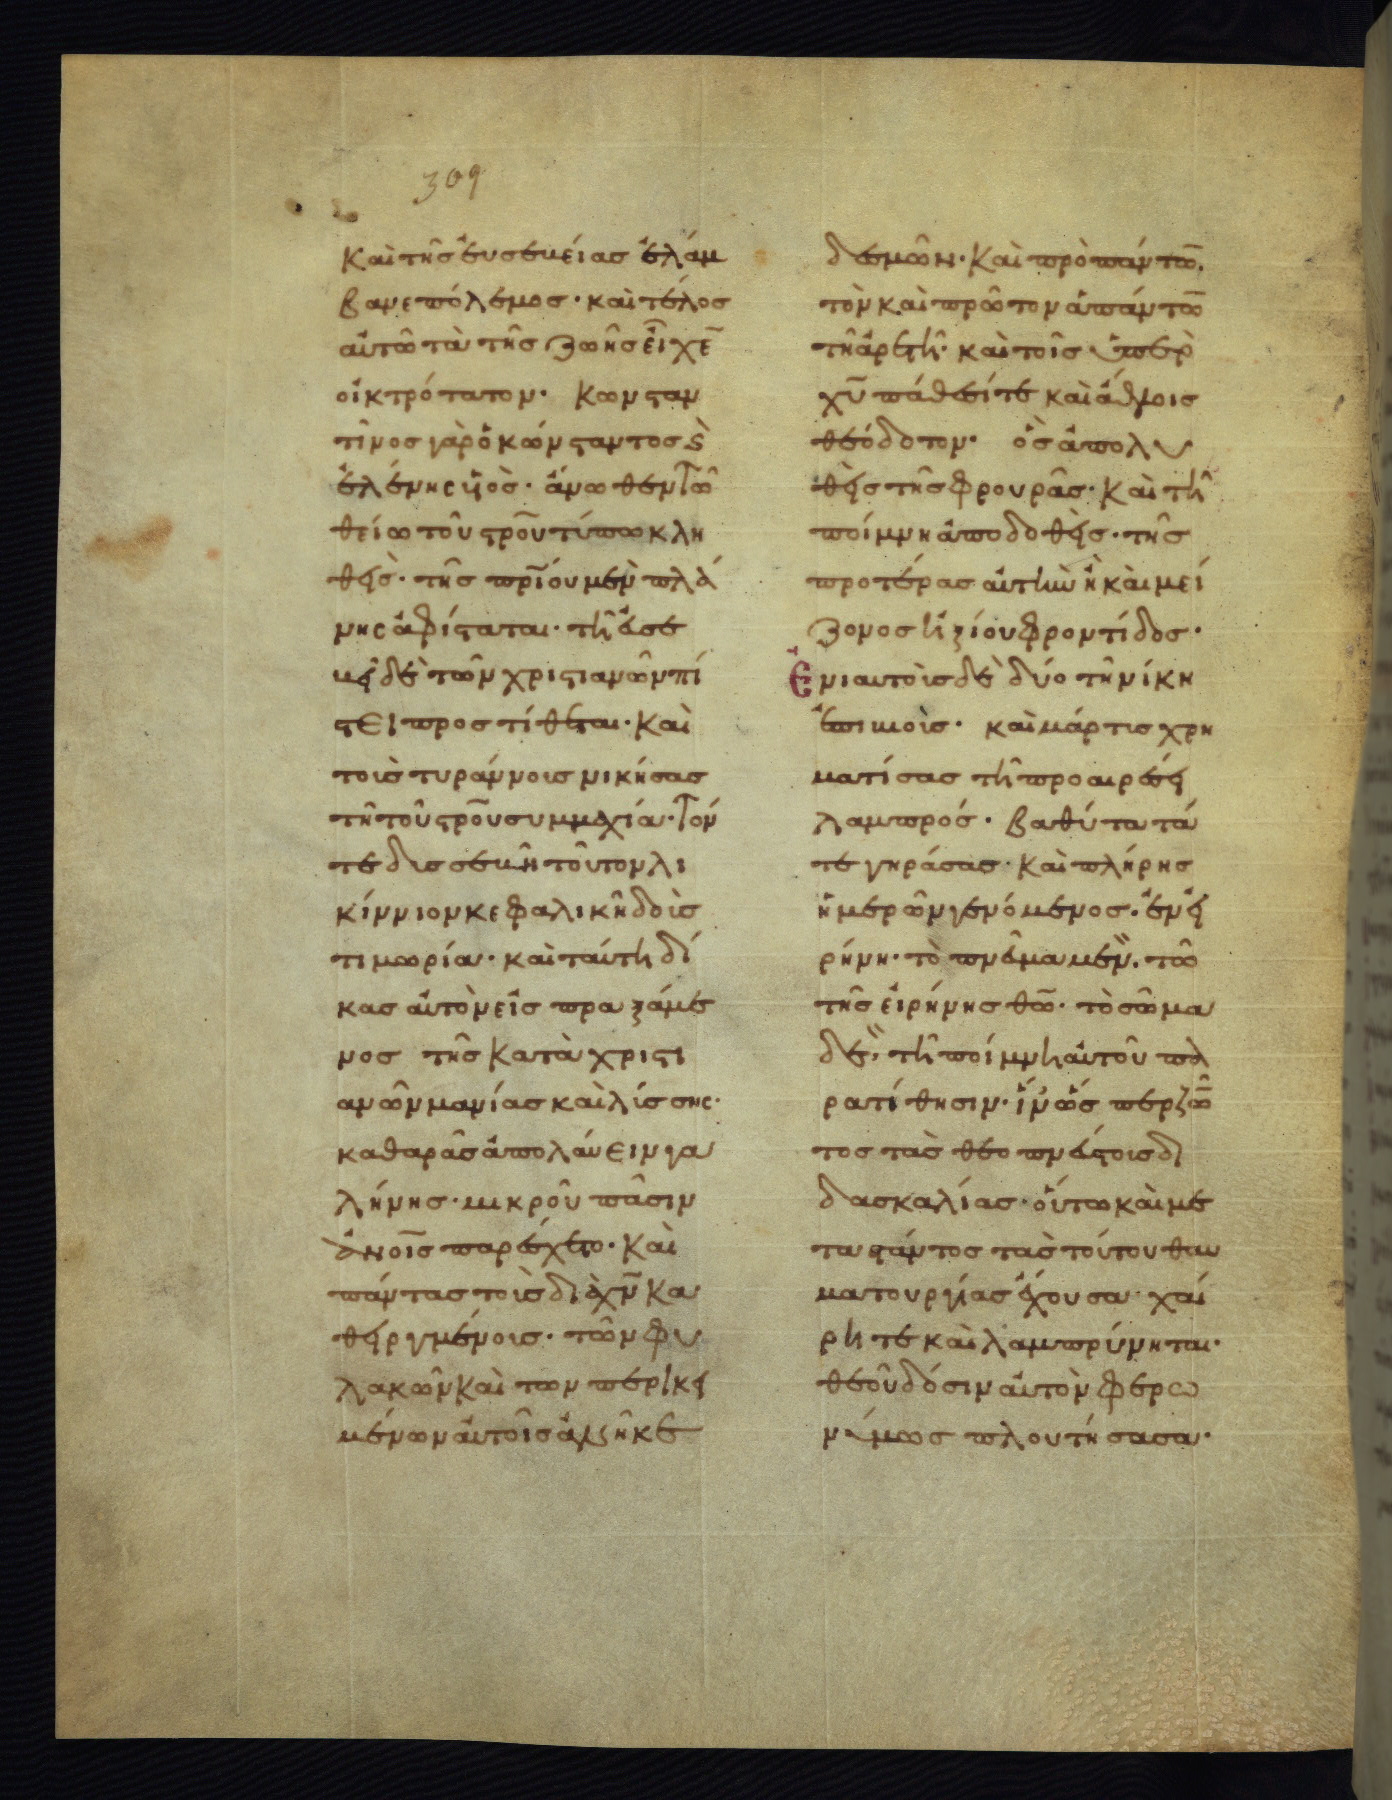 309
καὶ τῆς εὐσεβείας ἐλάμ
βανε πόλεμος· καὶ τέλος
αὐτῶ τὰ τῆς ζωῆς εἶχε̅
οἰκτρότατον· κωνσταν
τῖνος γὰρ ὁ κώνσταντος ϗ
ἑλένης υἱὸς· ἄνωθεν τῶ
θείω τοῦ σρ̅οῦ τύπω κλη
θεὶς· τῆς πρ̅ίου μὲν πλά
νης ἀφίσταται· τῆ εὐσε
βεῖ δὲ τῶν χριστιανῶν πί
στει προστίθεται· καὶ
τοῖς τυράννοις νικήσας
τῆ τοῦ σρ̅οῦ συμμαχία· τόν
τε δυσσεβῆ τοῦτον λι
κίννιον κεφαλικῆ δοὺς
τιμωρία· καὶ ταύτη δί
κας αὐτὸν εἰσπραξάμε
νος τῆς κατὰ χριστι
ανῶν μανίας καὶ λύσσης·
καθαρᾶς ἀπολαύειν γα
λήνης· μικροῦ πᾶσιν
ἀν̅οις παρέχεται· καὶ
πάντας τοῖς διὰ χν̅ κα
θειργμένοις· τῶν φυ
λακῶν καὶ τῶν περικει
μένων αὐτοῖς ἀνῆκε
δεσμῶν· καὶ πρὸ πάντω̅,
τὸν καὶ πρῶτον ἁπάντω̅
τῆ ἀρετῆ· καὶ τοῖς ὑπὲρ
χυ̅ πάθεσί τε καὶ ἄθλοις
θεόδοτον· ὃς ἀπολυ
θεὶς τῆς φρουρᾶς· καὶ τῆ
ποίμνη ἀποδοθεὶς· τῆς
προτέρας αὐτὴν ἢ καὶ μεί
ζονος ἠξίου φροντίδος·
Ἐνιαυτοὺς δὲ δύο τῆ νίκη
ἐπιβιοὺς· καὶ μάρτυς χρη
ματίσας τῆ προαιρέσει
λαμπρός· βαθύτατά
τε γηράσας· καὶ πλήρης
ἡμερῶν γενόμενος· ἐν εἰ
ρήνη· τὸ πνεῦμα μὲν, τῶ
τῆς εἰρήνης θω̅· τὸ σῶμα
δὲ, τῆ ποίμνη αὐτοῦ πα
ρατίθησιν· ἵν' ὥσπερ ζῶ̅
τος τὰς θεοπνεύστους δι
δασκαλίας· οὕτω καὶ με
ταστάντος τὰς τούτου θαυ
ματουργίας ἔχουσα χαί
ρη τε καὶ λαμπρύνηται·
θεοῦ δόσιν αὐτὸν φερω
νύμως πλουτήσασα·